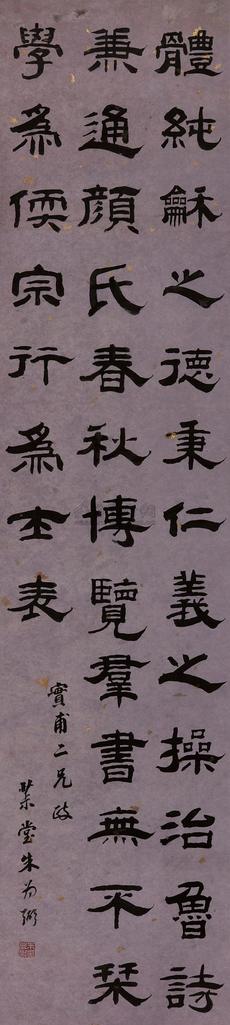 體純龢之德秉仁義之操治魯詩
兼通顏氏春秋博覽羣書無不栞
學為儒宗行為士表
實甫二兄政
椒堂朱為弼